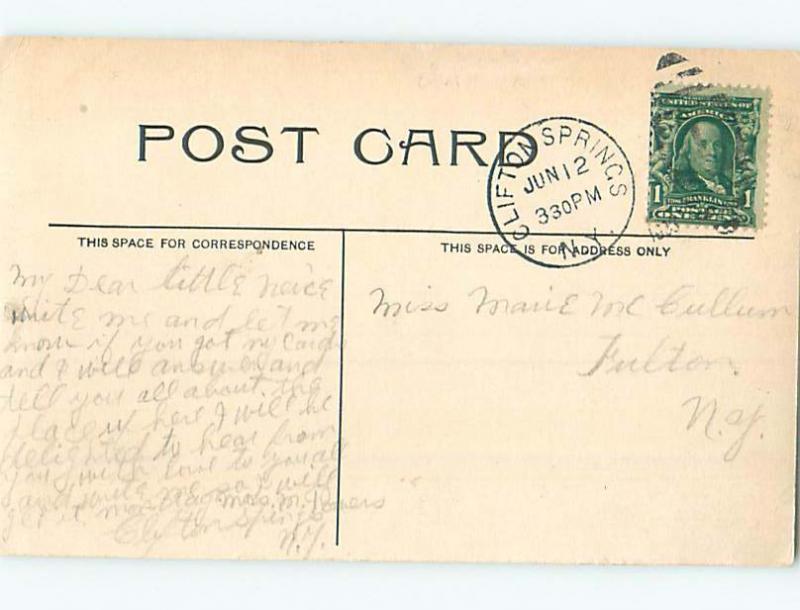 POST CARD
CLIFTON SPRINGS
JUN 12
330PM
N.Y.
UNITED STATES OF
AMERICA
1 FRANKLIN 1
POSTAGE
ONE CENT
THIS SPACE FOR CORRESPONDENCE
THIS SPACE IS FOR ADDRESS ONLY
My Dear little neice
write me and let me
know if you got my cards
and I will answer and
tell you all about the
place up here I will be
delighted to hear from
you with love to you all
and write me so I will
get it Mrs. M. Powers
Clifton Springs
N.Y.
Miss Marie Mc Cullum
Fulton
N.Y.